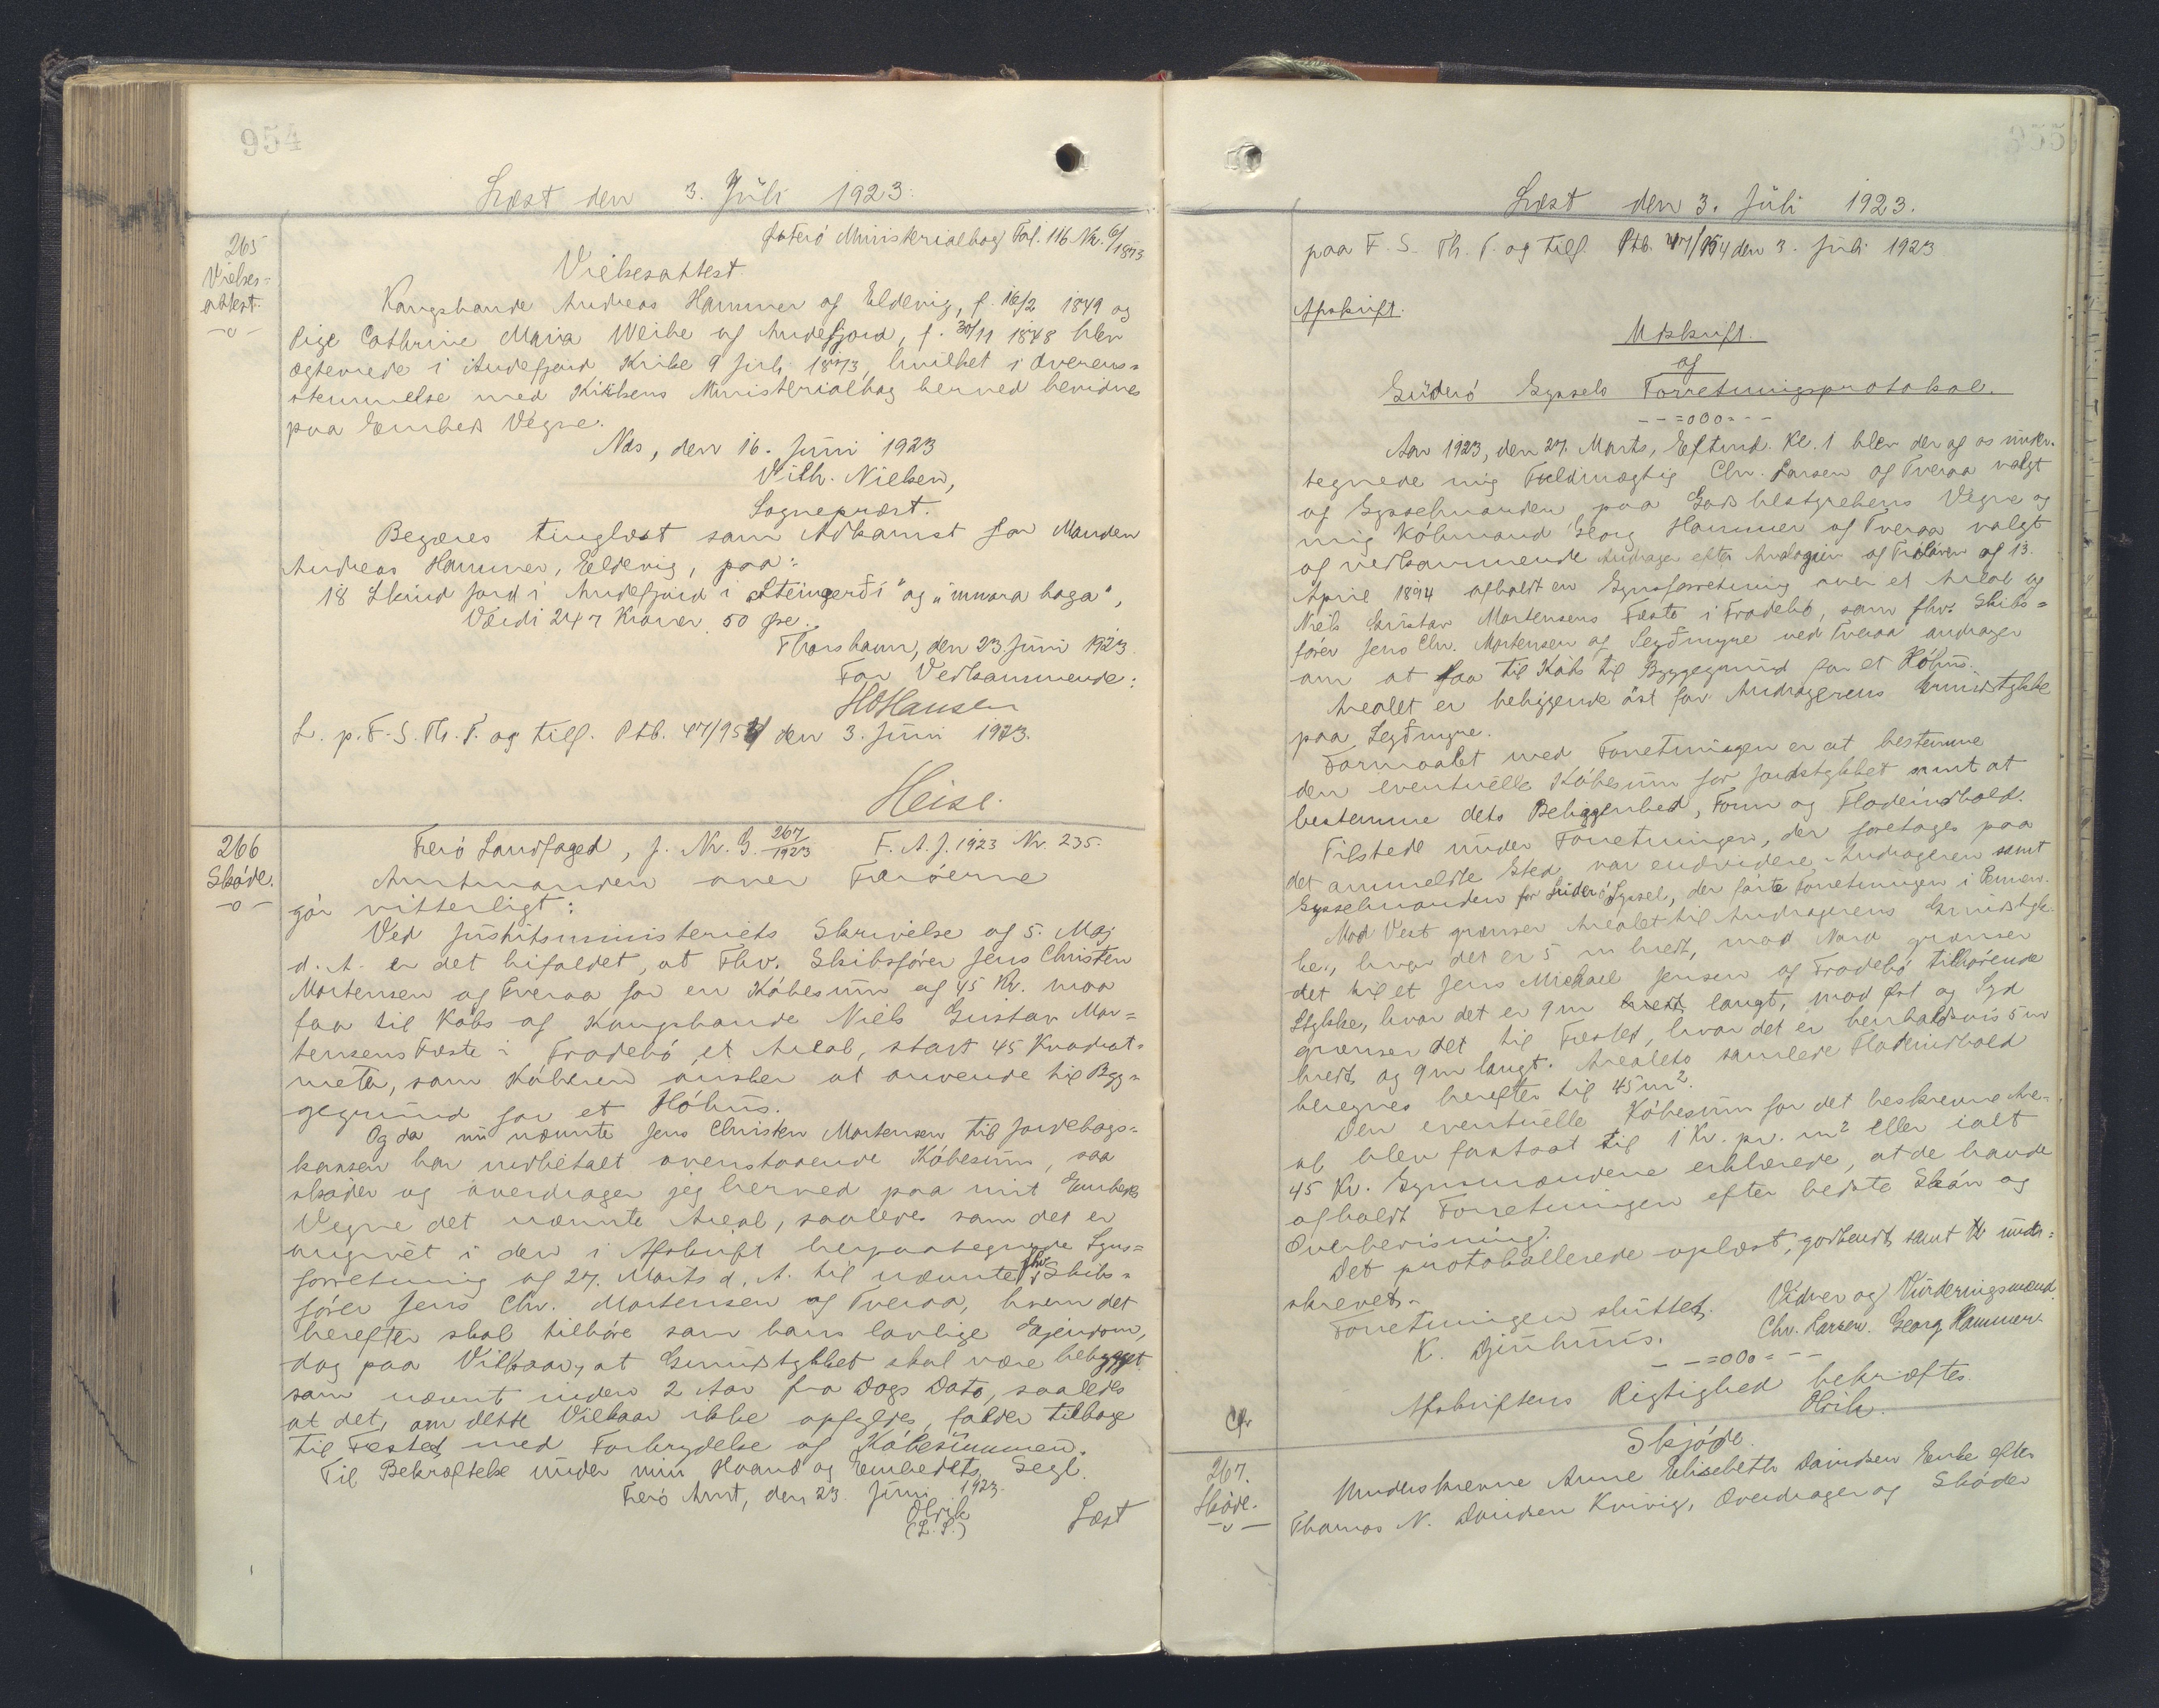 954
Læst den 3. Júli 1923.
265
Vielses=
attest.
Østerö Ministrialbog Fol. 116 Nr. 6/1873
Vielsesattest
Kongsbonde Andreas Hammer af Eldevig, f. 16/2 1849 og
Pige Cathrine Maria Weihe af Andefjord, f. 30/11 1848 blev
ægteviede i Andefjord Kirke 9 Juli 1873, hvilket i Overens=
stemmelse med Kirkens Ministerialbog herved bevidnes
paa Embeds Vegne.
Nes, den 16. Júni 1923
Vilh. Nielsen,
Sognepræst.
Begæres tinglæst som Adkomst for Manden
Andreas Hammer, Eldevig, paa:
18 Skind Jord i Andefjord i "Steingerði" og "innara haga",
Værdi 247 Kroner 50 Øre.
Thorshavn, den 23. Júni 1923.
For Vedkommende:
HHansen
L. p. F. S. Th. T. og tilf. Ptb. 47/954 den 3. Júni 1923.
Heise.
266
Sköde.
Færö Landfoged, J. Nr. G. 267/1923 F. A. J. 1923 Nr. 235.
Amtmanden over Færöerne
gör vitterligt:
Ved Jústitsministeriets Skrivelse af 5. Maj
d. A. er det bifaldet, at Fhv. Skibsförer Jens Christen
Mortensen af Tveraa for en Köbesúm af 45 Kr. maa
faa til Köbs af Kongsbonde Niels Gústav Mor=
tensens Fæste i Frodebö et Areal, stort 45 Kvadrat=
meter, som Köberen önsker at anvende til Byg=
gegrúnd for et Höhús.
Og da nú nævnte Jens Christen Mortensen til Jordebogs=
kassen har indbetalt ovenstaaende Köbesúm, saa
sköder og overdrager jeg herved paa mit Embeds
Vegne det nævnte Areal, saaledes som det er
angivet i den i Afskrift herpaategnede Syns=
forretning af 27. Marts d. A. til nævnte fhv. Skibs=
förer Jens Chr. Mortensen af Tveraa, hvem det
herefter skal tilhöre som hans lovlige Ejendom,
dog paa Vilkaar, at Grúndstykket skal være bebygget
som nævnt inden 2 Aar fra Dags Dato, saaledes
at det, om dette Vilkaar ikke opfyldes, falder tilbage
til Fæstet med Forbrydelse af Köbesúmmen.
Til Bekræftelse únder min Haand og Embedets Segl.
Færö Amt, den 23. Júni 1923.
Olrik
(L. S.)
Læst
955
Læst den 3. Júli 1923.
paa F. S. Th. T. og tilf. Ptb. 47/954 den 3. Júli 1923
Afskrift.
Udskrift.
af
Súderö Syssels Forretningsprotokol.
---=000=---
Aar 1923, den 27. Marts, Eftmd. Kl. 1 blev der af os únder-
tegnede mig Fúldmægtig Chr. Larsen af Tveraa valgt
af Sysselmanden paa Godsbestyrelsens Vegne og
mig Köbmand Georg Hammer af Tveraa valgt
af vedkommende Andrager efter Analogien af Fröloven af 13.
April 1894 afholdt en Synsforretning over et Areal af
Niels Gústav Mortensens Fæste i Frodebö, som fhv. Skibs=
förer Jens Chr. Mortensen af Segðmyre ved Tveraa andrager
om at faa til Köbs til Byggegrúnd for et Höhús.
Arealet er beliggende öst for Andragerens Grúndstykke
paa Segðmyre.
Formaalet med Forretningen er at bestemme
den eventúelle Köbesúm for Jordstykket samt at
bestemme dets Beliggenhed, Form og Fladeindhold.
Tilstede únder Forretningen, der foretages paa
det anmeldte Sted, var endvidere Andrageren samt
Sysselmanden for Súderö Syssel, der förte Forretningen i Pennen.
Mod Vest grænser Arealet til Andragerens Grúndstyk-
ke, hvor det er 5 m bredt, mod Nord grænser
det til et Jens Michael Jensen af Frodebö tilhörende
Stykke, hvor det er 9 m bredt langt, mod Öst og Syd
grænser det til Fæstet, hvor det er henholdsvis 5 m
bredt og 9 m langt. Arealets samlede Fladeindhold
beregnes herefter til 45 m².
Den eventúelle Köbesúm for det beskrevne Are-
al blev fastsat til 1 Kr. pr. m² eller ialt
45 Kr. Synsmændene erklærede, at de havde
afholdt Forretningen efter bedste Skön og
Overbevisning.
Det protokollerede oplæst, godkendt samt únder=
skrevet.
Forretningen slúttet.
K. Djúrhúús.
Vidner og Vúrderingsmænd.
Chr. Larsen. Georg Hammer.
---=000=---
Afskriftens Rigtighed bekræftes.
Olrik.
Cfr
267.
Sköde.
Skjöde.
Underskrevne Anne Elisebeth Davidsen Enke efter
Thomas N. Davidsen Kvivig, Overdrager og Sköder